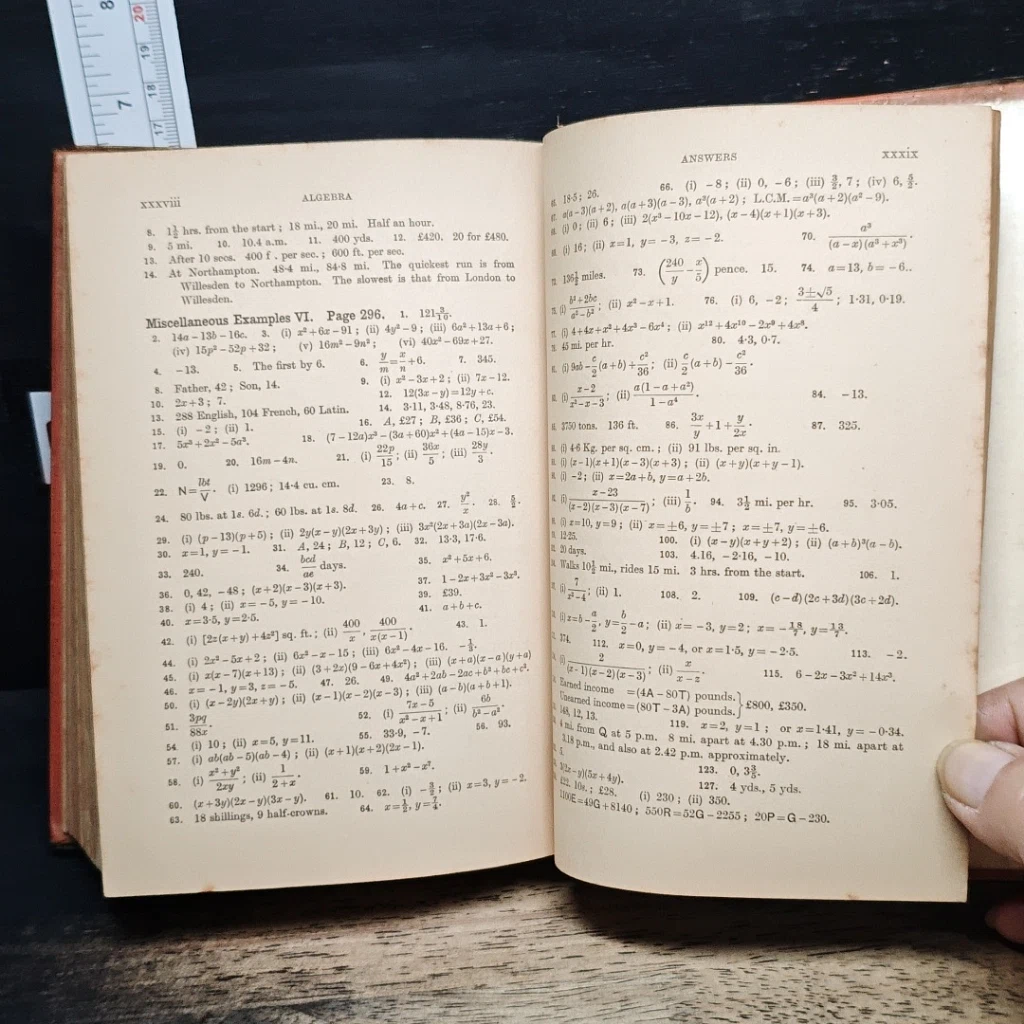 8
20
19
7
18
17
xxxviii ALGEBRA
8. 1½ hrs. from the start; 18 mi., 20 mi. Half an hour.
9. 5 mi. 10. 10.4 a.m. 11. 400 yds. 12. £420. 20 for £480.
13. After 10 secs. 400 f . per sec.; 600 ft. per sec.
14. At Northampton. 48·4 mi., 84·8 mi. The quickest run is from
Willesden to Northampton. The slowest is that from London to
Willesden.
Miscellaneous Examples VI. Page 296. 1. 121 3/16.
2. 14a−13b−16c. 3. (i) x²+6x−91; (ii) 4y²−9; (iii) 6a²+13a+6;
(iv) 15p²−52p+32; (v) 16m²−9n²; (vi) 40x²−69x+27.
4. −13. 5. The first by 6. 6. y/m=x/n+6. 7. 345.
8. Father, 42; Son, 14. 9. (i) x²−3x+2; (ii) 7x−12.
10. 2x+3; 7. 12. 12(3x−y)=12y+c.
13. 288 English, 104 French, 60 Latin. 14. 3·11, 3·48, 8·76, 23.
15. (i) −2; (ii) 1. 16. A, £27; B, £36; C, £54.
17. 5x³+2x²−5a³. 18. (7−12a)x³−(3a+60)x²+(4a−15)x−3.
19. 0. 20. 16m−4n. 21. (i) 22p/15; (ii) 36x/5; (iii) 28y/3.
22. N=lbt/V. (i) 1296; 14·4 cu. cm. 23. 8.
24. 80 lbs. at 1s. 6d.; 60 lbs. at 1s. 8d. 26. 4a+c. 27. y²/x. 28. 5/2.
29. (i) (p−13)(p+5); (ii) 2y(x−y)(2x+3y); (iii) 3x²(2x+3a)(2x−3a).
30. x=1, y=−1. 31. A, 24; B, 12; C, 6. 32. 13·3, 17·6.
33. 240. 34. bcd/ae days. 35. x²+5x+6.
36. 0, 42, −48; (x+2)(x−3)(x+3). 37. 1−2x+3x²−3x³.
38. (i) 4; (ii) x=−5, y=−10. 39. £39.
40. x=3·5, y=2·5. 41. a+b+c.
42. (i) [2x(x+y)+4x²] sq. ft.; (ii) 400/x, 400/x(x−1). 43. 1.
44. (i) 2x²−5x+2; (ii) 6x²−x−15; (iii) 6x²−4x−16. −⅓.
45. (i) x(x−7)(x+13); (ii) (3+2x)(9−6x+4x²); (iii) (x+a)(x−a)(y+a)
46. x=−1, y=3, z=−5. 47. 26. 49. 4a²+2ab−2ac+b²+bc+c².
50. (i) (x−2y)(2x+y); (ii) (x−1)(x−2)(x−3); (iii) (a−b)(a+b+1).
51. 3pq/88x. 52. (i) 7x−5/x²−x+1; (ii) 6b/b²−a². 
54. (i) 10; (ii) x=5, y=11. 55. 33·9, −7. 56. 93.
57. (i) ab(ab−5)(ab−4); (ii) (x+1)(x+2)(2x−1).
58. (i) x²+y²/2xy; (ii) 1/2+x. 59. 1+x²−x⁷.
60. (x+3y)(2x−y)(3x−y). 61. 10. 62. (i) −3/2; (ii) x=3, y=−2.
63. 18 shillings, 9 half-crowns. 64. x=½, y=7/4.
ANSWERS xxxix
18·5; 26. 66. (i) −8; (ii) 0, −6; (iii) 3/2, 7; (iv) 6, 5/2.
a(a−3)(a+2), a(a+3)(a−3), a³(a+2); L.C.M.=a³(a+2)(a²−9).
(i) 0; (ii) 6; (iii) 2(x³−10x−12), (x−4)(x+1)(x+3).
(i) 16; (ii) x=1, y=−3, z=−2. 70. a³/(a−x)(a³+x³).
136½ miles. 73. (240/y − x/5) pence. 15. 74. a=13, b=−6..
(i) b²+2bc/a²−b²; (ii) x²−x+1. 76. (i) 6, −2; 3±√5/4; 1·31, 0·19.
(i) 4+4x+x²+4x³−6x⁴; (ii) x¹²+4x¹⁰−2x⁹+4x⁸.
45 mi. per hr. 80. 4·3, 0·7.
(i) 9ab−c/2(a+b)+c²/36; (ii) c/2(a+b)−c²/36.
(i) x−2/x²−x−3; (ii) a(1−a+a²)/1−a⁴. 84. −13.
3750 tons. 136 ft. 86. 3x/y+1+y/2x. 87. 325.
(i) 4·6 Kg. per sq. cm.; (ii) 91 lbs. per sq. in.
(i) (x−1)(x+1)(x−3)(x+3); (ii) (x+y)(x+y−1).
(i) −2; (ii) x=2a+b, y=a+2b.
(i) x−23/(x−2)(x−3)(x−7); (iii) 1/b. 94. 3½ mi. per hr. 95. 3·05.
(i) x=10, y=9; (ii) x=±6, y=±7; x=±7, y=±6.
12·25. 100. (i) (x−y)(x+y+2); (ii) (a+b)³(a−b).
20 days. 103. 4.16, −2·16, −10.
Walks 10½ mi., rides 15 mi. 3 hrs. from the start. 106. 1.
(i) 7/x²−4; (ii) 1. 108. 2. 109. (c−d)(2c+3d)(3c+2d).
(i) x=b−a/2, y=b/2−a; (ii) x=−3, y=2; x=−18/7, y=13/7.
374. 112. x=0, y=−4, or x=1·5, y=−2·5. 113. −2.
(i) 2/(x−1)(x−2)(x−3); (ii) x/x−z. 115. 6−2x−3x²+14x³.
Earned income =(4A−80T) pounds.
Unearned income=(80T−3A) pounds.} £800, £350.
148, 12, 13. 119. x=2, y=1; or x=1·41, y=−0·34.
4 mi. from Q at 5 p.m. 8 mi. apart at 4.30 p.m.; 18 mi. apart at
3.18 p.m., and also at 2.42 p.m. approximately.
5. 123. 0, 3⅗.
3(2x−y)(5x+4y). 127. 4 yds., 5 yds.
£22. 10s.; £28. (i) 230; (ii) 350.
1100E=49G+8140; 550R=52G−2255; 20P=G−230.